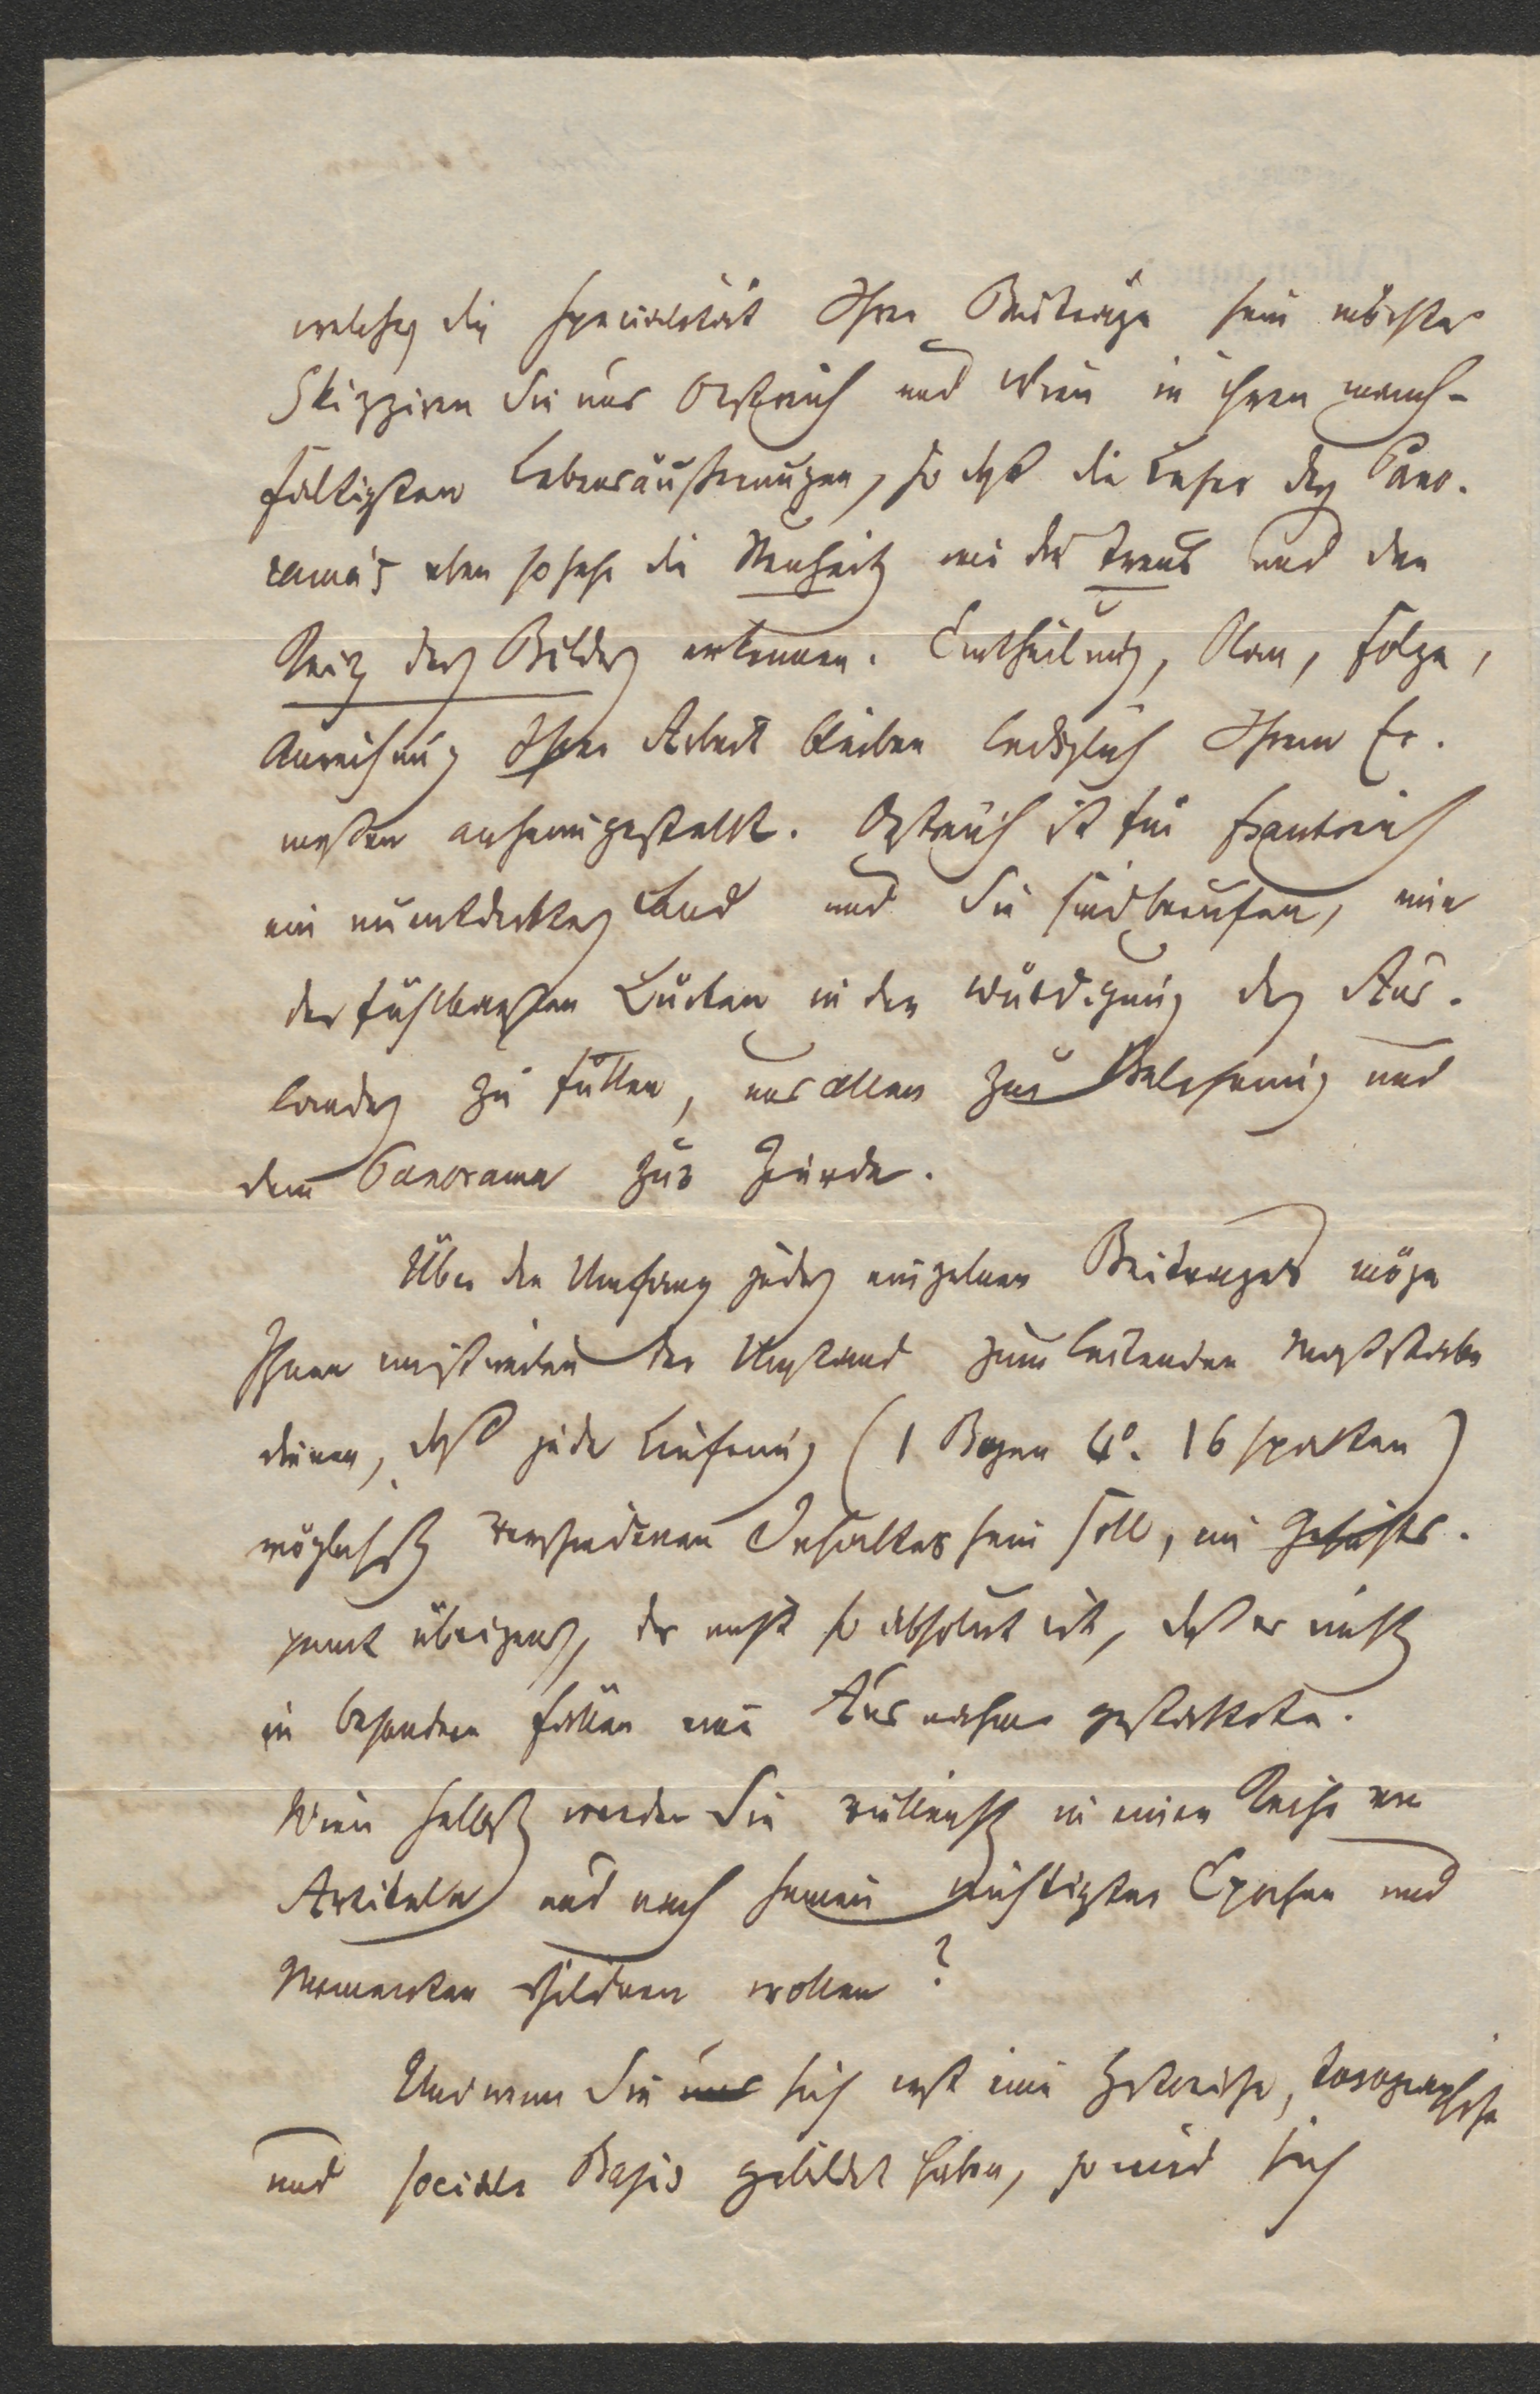 welches die Specialität Ihrer Beiträge sein möchte
Skizziren Sie uns Östreich und Wien in ihren mannich-
fältigsten Lebensäußerungen, so daß die Leser des Pano-
rama's eben so sehr die Neuheit wie die Treue und den
Reiz des Bildes erkennen. Eintheilung, Plan, Folge,
Anreihung Ihrer Arbeit bleiben lediglich Ihrem Er-
messen anheimgestellt. Östreich ist für Frankreich
ein unentdecktes Land und Sie sind berufen, eine
der fühlbarsten Lücken in der Würdigung des Aus-
landes zu füllen, uns allen zur Belehrung und
dem Panorama zur Zierde.
Über den Umfang jedes einzelnen Beitrages möge
Ihnen mitunter der Umstand zum leitenden Maßstabe
dienen, daß jede Lieferung (1 Bogen 4º. 16 Spalten)
möglichst verschiedenen Inhaltes sein soll, ein Gesichts-
punkt übrigens, der nicht so absolut ist, daß er nicht
in besondern Fällen eine Ausnahme gestattete.
Wien selbst werden Sie vielleicht in einer Reihe von
Artikeln und nach seinen wichtigsten Epochen und
Momenten schildern wollen?
Und wenn Sie uns sich erst eine historische, topographische
und sociale Basis gebildet haben, so wird sich